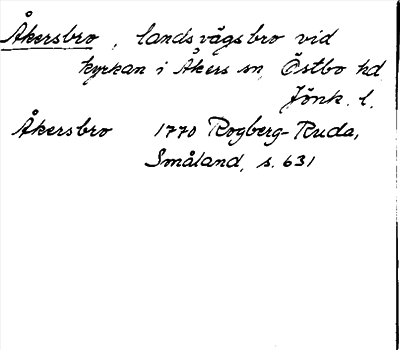 Åkersbro, landsvägsbro vid
kyrkan i Åkers sn, Östbo hd,
Jönk. l.
Åkersbro 1770 Rogberg-Ruda,
Småland, s. 631